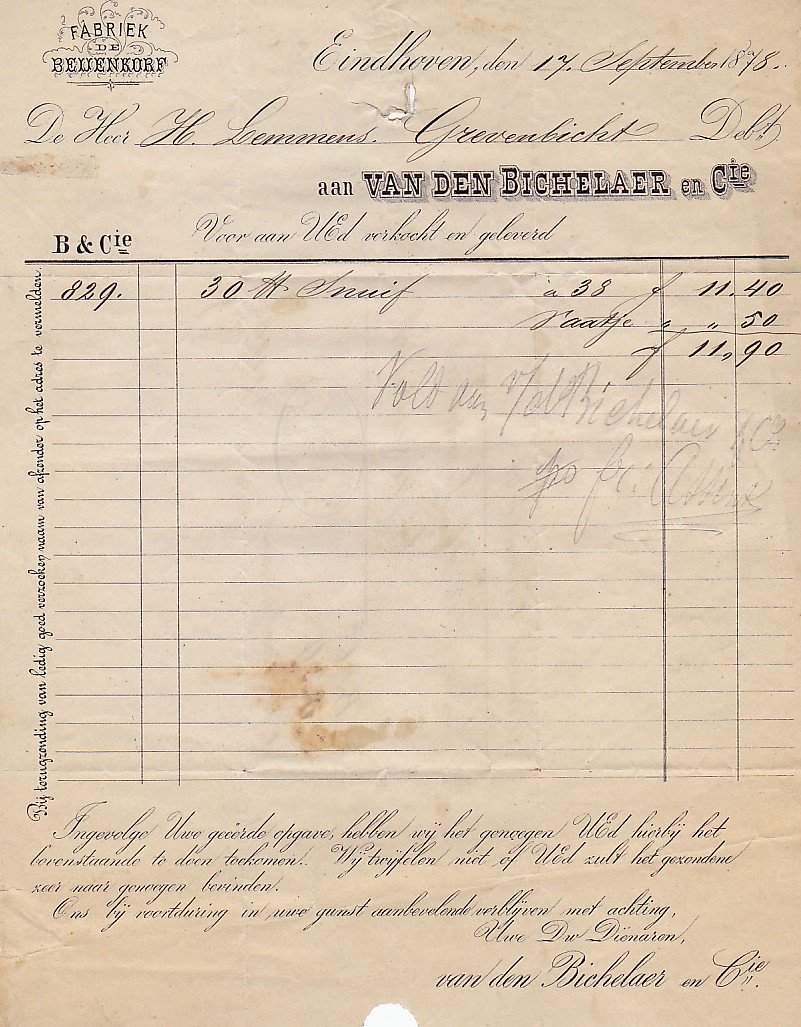 FABRIEK
DE
BEIJENKORF
Eindhoven, den 17. September 1878.
De Heer H. Lemmens. Grevenbicht Debt
aan VAN DEN BICHELAER en Cie
B & Cie Voor aan UEd verkocht en geleverd
829. 30 ℔ Snuif à 38 f 11.40
Vaatje " " 50
f 11,90
Vold aan v/d Bichelaer & Cie
po
Bij terugzending van ledig goed verzoeken naam van afzender op het adres te vermelden.
Ingevolge Uwe geëerde opgave, hebben wij het genoegen UEd hierbij het
bovenstaande te doen toekomen. Wij twijfelen niet of UEd zult het gezondene
zeer naar genoegen bevinden.
Ons bij voortduring in uwe gunst aanbevelende verblijven met achting,
Uwe Dw Dienaren,
van den Bichelaer en Cie.